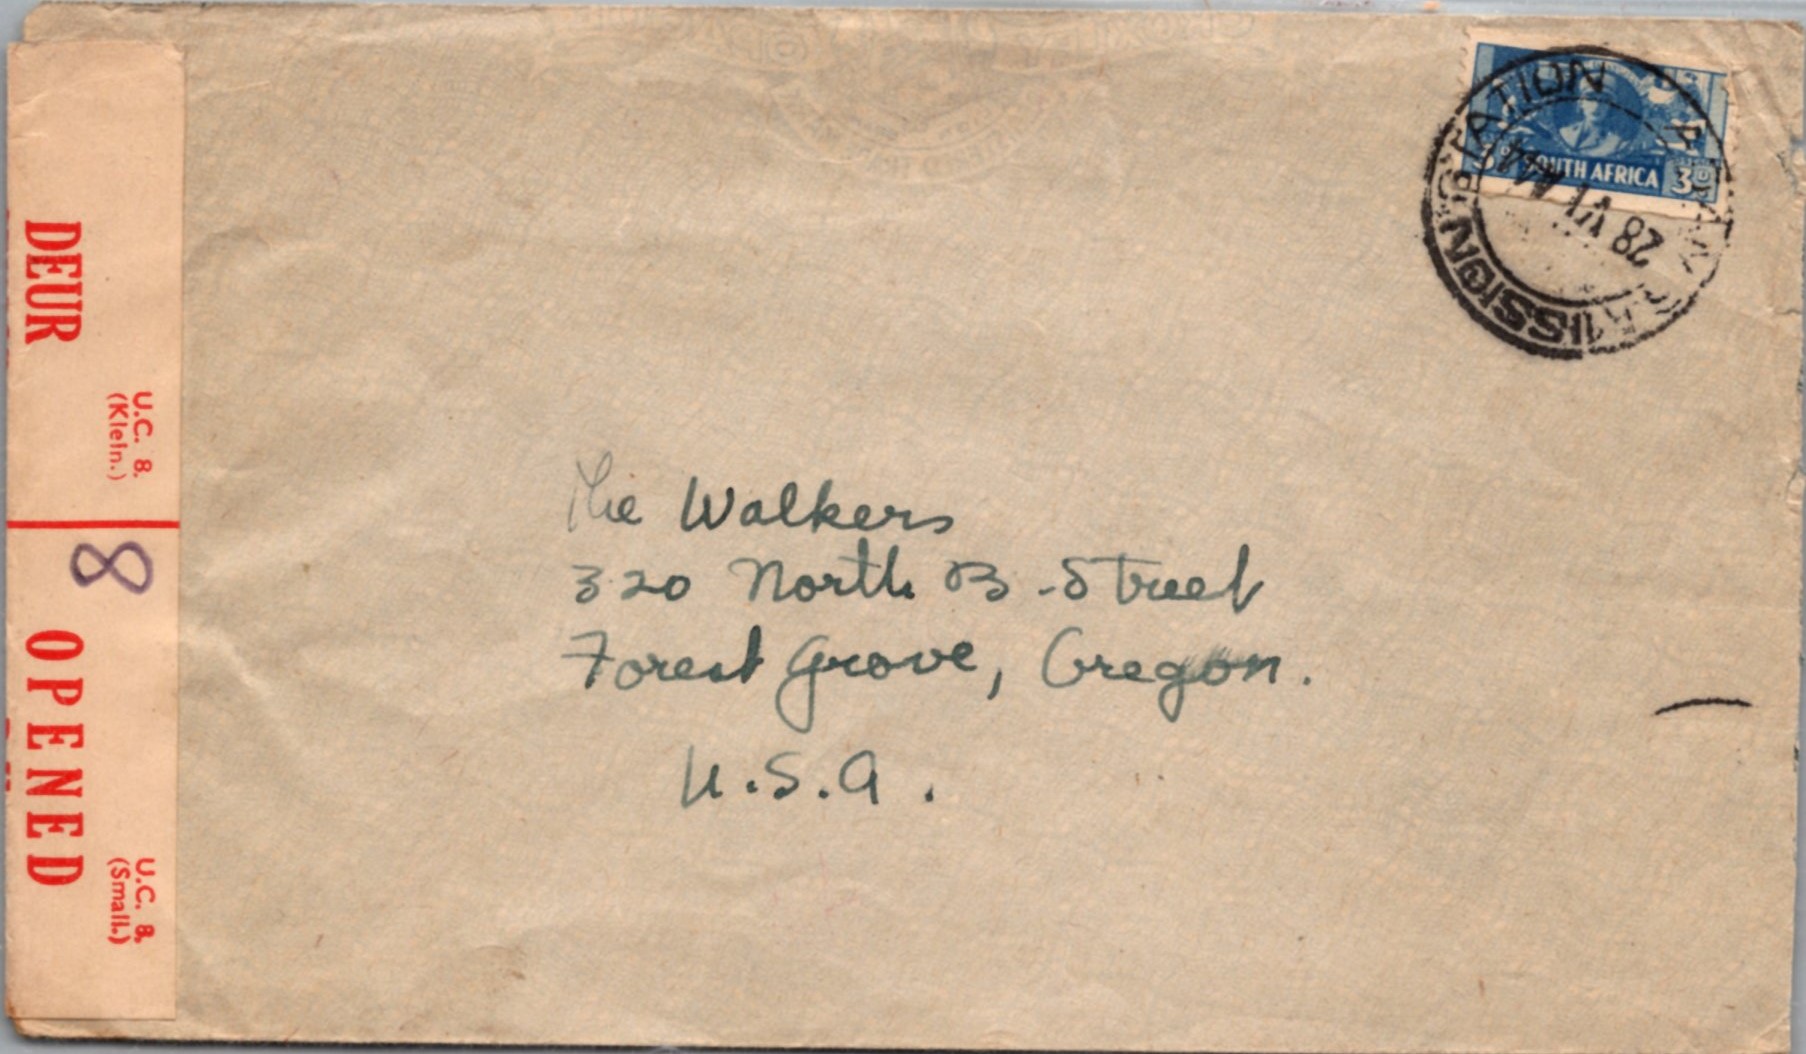 DEUR
U.C. 8.
(Klein.)
8
OPENED
U.C. 8.
(Small.)
MISSION STATION
28 VI 44
SOUTH AFRICA
3D
The Walkers
320 North B Street
Forest Grove, Oregon.
U.S.A.